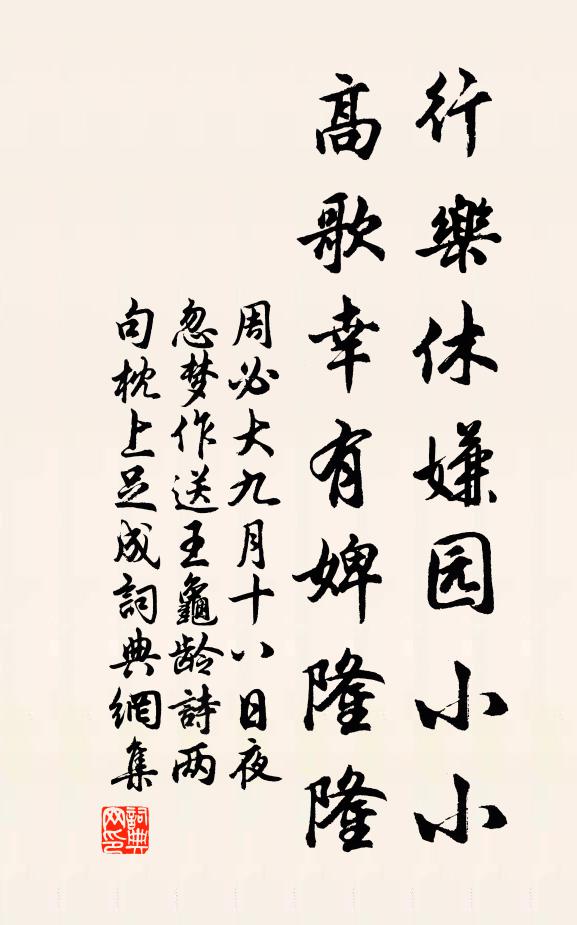 行樂休嫌园小小
高歌幸有婢隆隆
周必大九月十八日夜
忽梦作送王龜龄詩两
句枕上足成詞典網集
詞典
网印